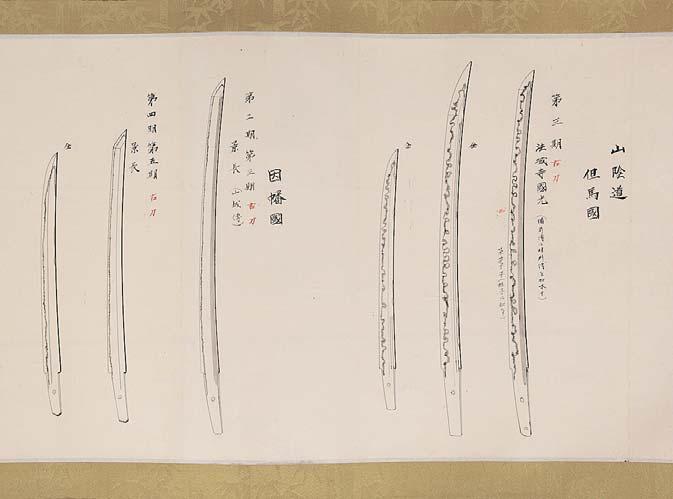 山陰道
但馬國
第三期 古刀
法城寺國光
仝
仝
因幡國
第二期 第三期 古刀
景長 山城傳
第四期 第五期 古刀
景長
仝